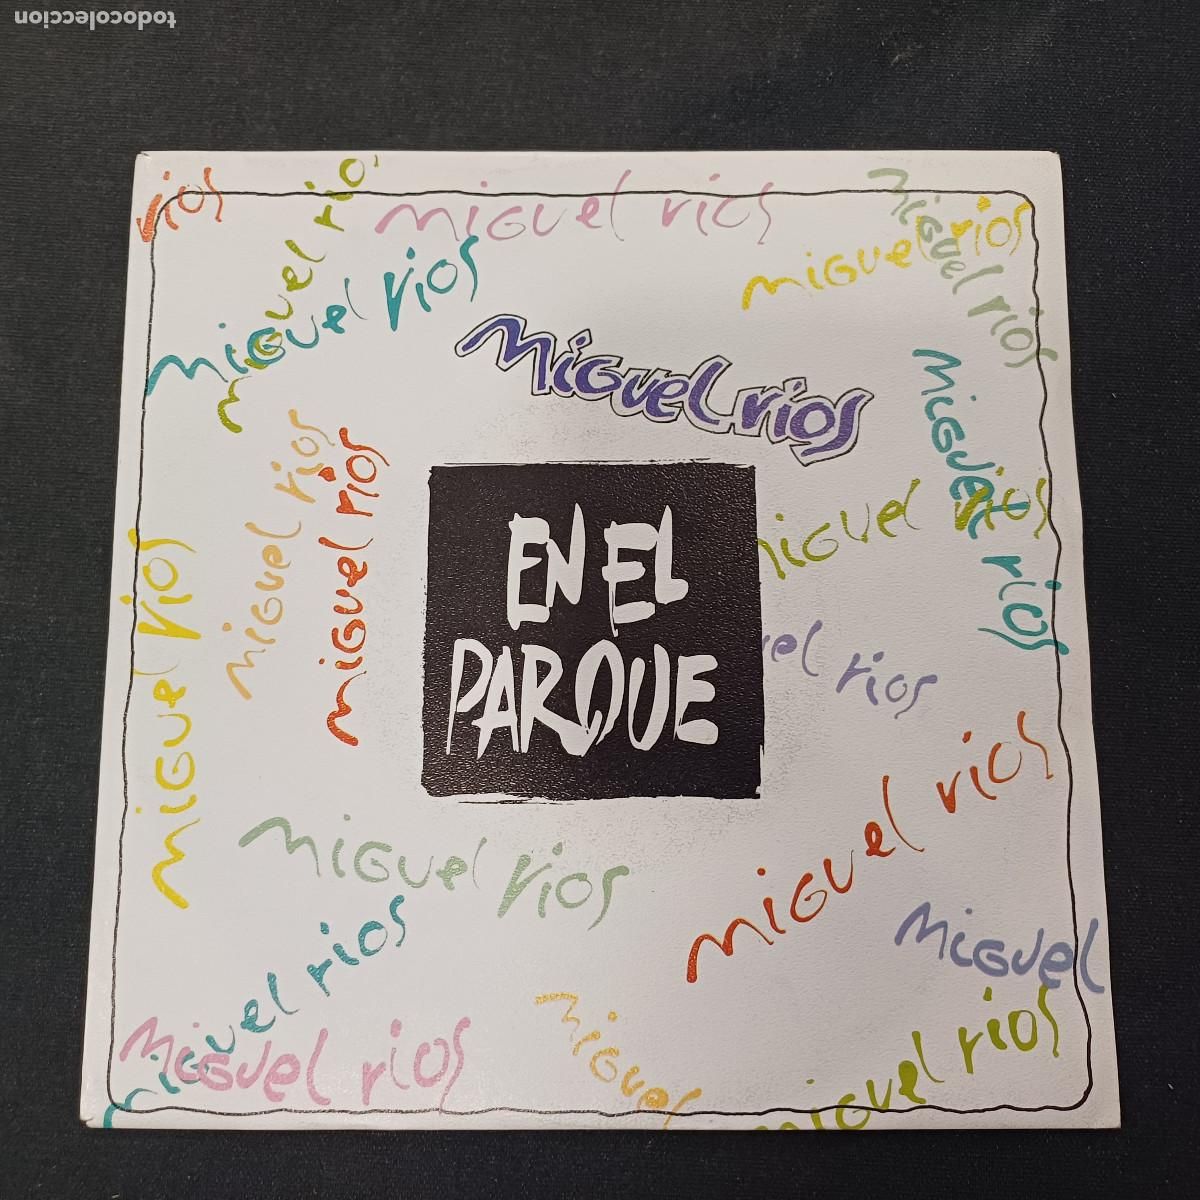 todocoleccion
rios
miguel rio
miguel rios
miguel rios
miguel rios
miguel rios
Miguel rios
miguel rios
miguel rios
miguel rios
miguel rios
EN EL
PARQUE
miguel rios
miguel rios
el rios
miguel rios
miguel rios
miguel rios
miguel
miguel rios
miguel
miguel rios